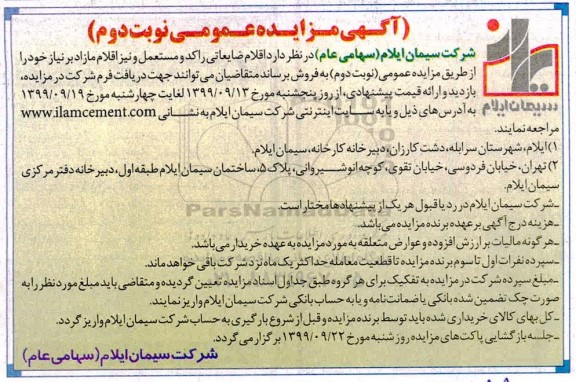 (آگهی مزایده عمومی نوبت دوم)
سیمان ایلام
شرکت سیمان ایلام (سهامی عام) در نظر دارد اقلام ضایعاتی راکد و مستعمل و نیز اقلام مازاد بر نیاز خود را
از طریق مزایده عمومی (نوبت دوم) به فروش برساند متقاضیان می توانند جهت دریافت فرم شرکت در مزایده،
بازدید و ارائه قیمت پیشنهادی، از روز پنجشنبه مورخ ۱۳۹۹/۰۹/۱۳ لغایت چهارشنبه مورخ ۱۳۹۹/۰۹/۱۹
به آدرس های ذیل و یا به سایت اینترنتی شرکت سیمان ایلام به نشانی www.ilamcement.com
مراجعه نمایند.
۱) ایلام، شهرستان سرابله، دشت کارزان، دبیرخانه کارخانه، سیمان ایلام.
۲) تهران، خیابان فردوسی، خیابان تقوی، کوچه انوشیروانی، پلاک ۵، ساختمان سیمان ایلام طبقه اول، دبیرخانه دفتر مرکزی
سیمان ایلام.
ـ شرکت سیمان ایلام در رد یا قبول هر یک از پیشنهادها مختار است.
ـ هزینه درج آگهی بر عهده برنده مزایده می باشد.
ـ هر گونه مالیات بر ارزش افزوده و عوارض متعلقه به مورد مزایده به عهده خریدار می باشد.
ـ سپرده نفرات اول تا سوم برنده مزایده تا قطعیت معامله حداکثر یک ماه نزد شرکت باقی خواهد ماند.
ـ مبلغ سپرده شرکت در مزایده به تفکیک برای هر گروه طبق جداول اسناد مزایده تعیین گردیده و متقاضی باید مبلغ مورد نظر را به
صورت چک تضمین شده بانکی یا ضمانت نامه و یا به حساب بانکی شرکت سیمان ایلام واریز نمایند.
ـ کل بهای کالای خریداری شده باید توسط برنده مزایده و قبل از شروع بارگیری به حساب شرکت سیمان ایلام واریز گردد.
ـ جلسه بازگشایی پاکت های مزایده روز شنبه مورخ ۱۳۹۹/۰۹/۲۲ برگزار می گردد.
شرکت سیمان ایلام (سهامی عام)